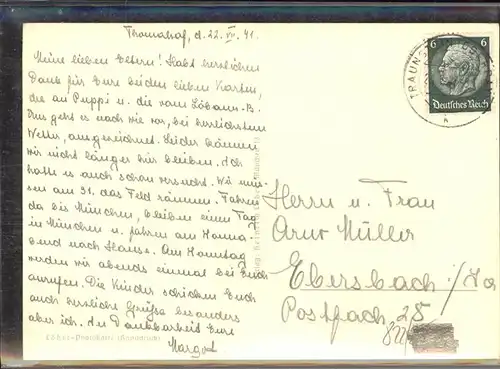 d. 22. VII. 41.
Meine lieben Eltern! Habt herzlichen
Dank für Eure beiden lieben Karten,
die an Puppi u. die vom Löbaun-B.
Uns geht es nach wie vor, bei herrlichstem
Wetter, ausgezeichnet. Leider können
wir nicht länger hier bleiben. Ich
hatte es auch schon versucht. Wir müs-
sen am 31. das Feld räumen. Fahren
da bis München, bleiben einen Tag
in München u. fahren am
nach Hause. Am
werden wir abends einmal bei Euch
anrufen. Die Kinder schicken Euch
auch herzliche Grüße besonders
aber ich. In Dankbarkeit Eure
Margot
6 6
Deutsches Reich
TRAUNS
Herrn u. Frau
Arno Müller
Ebersbach/Sa
Postfach 25